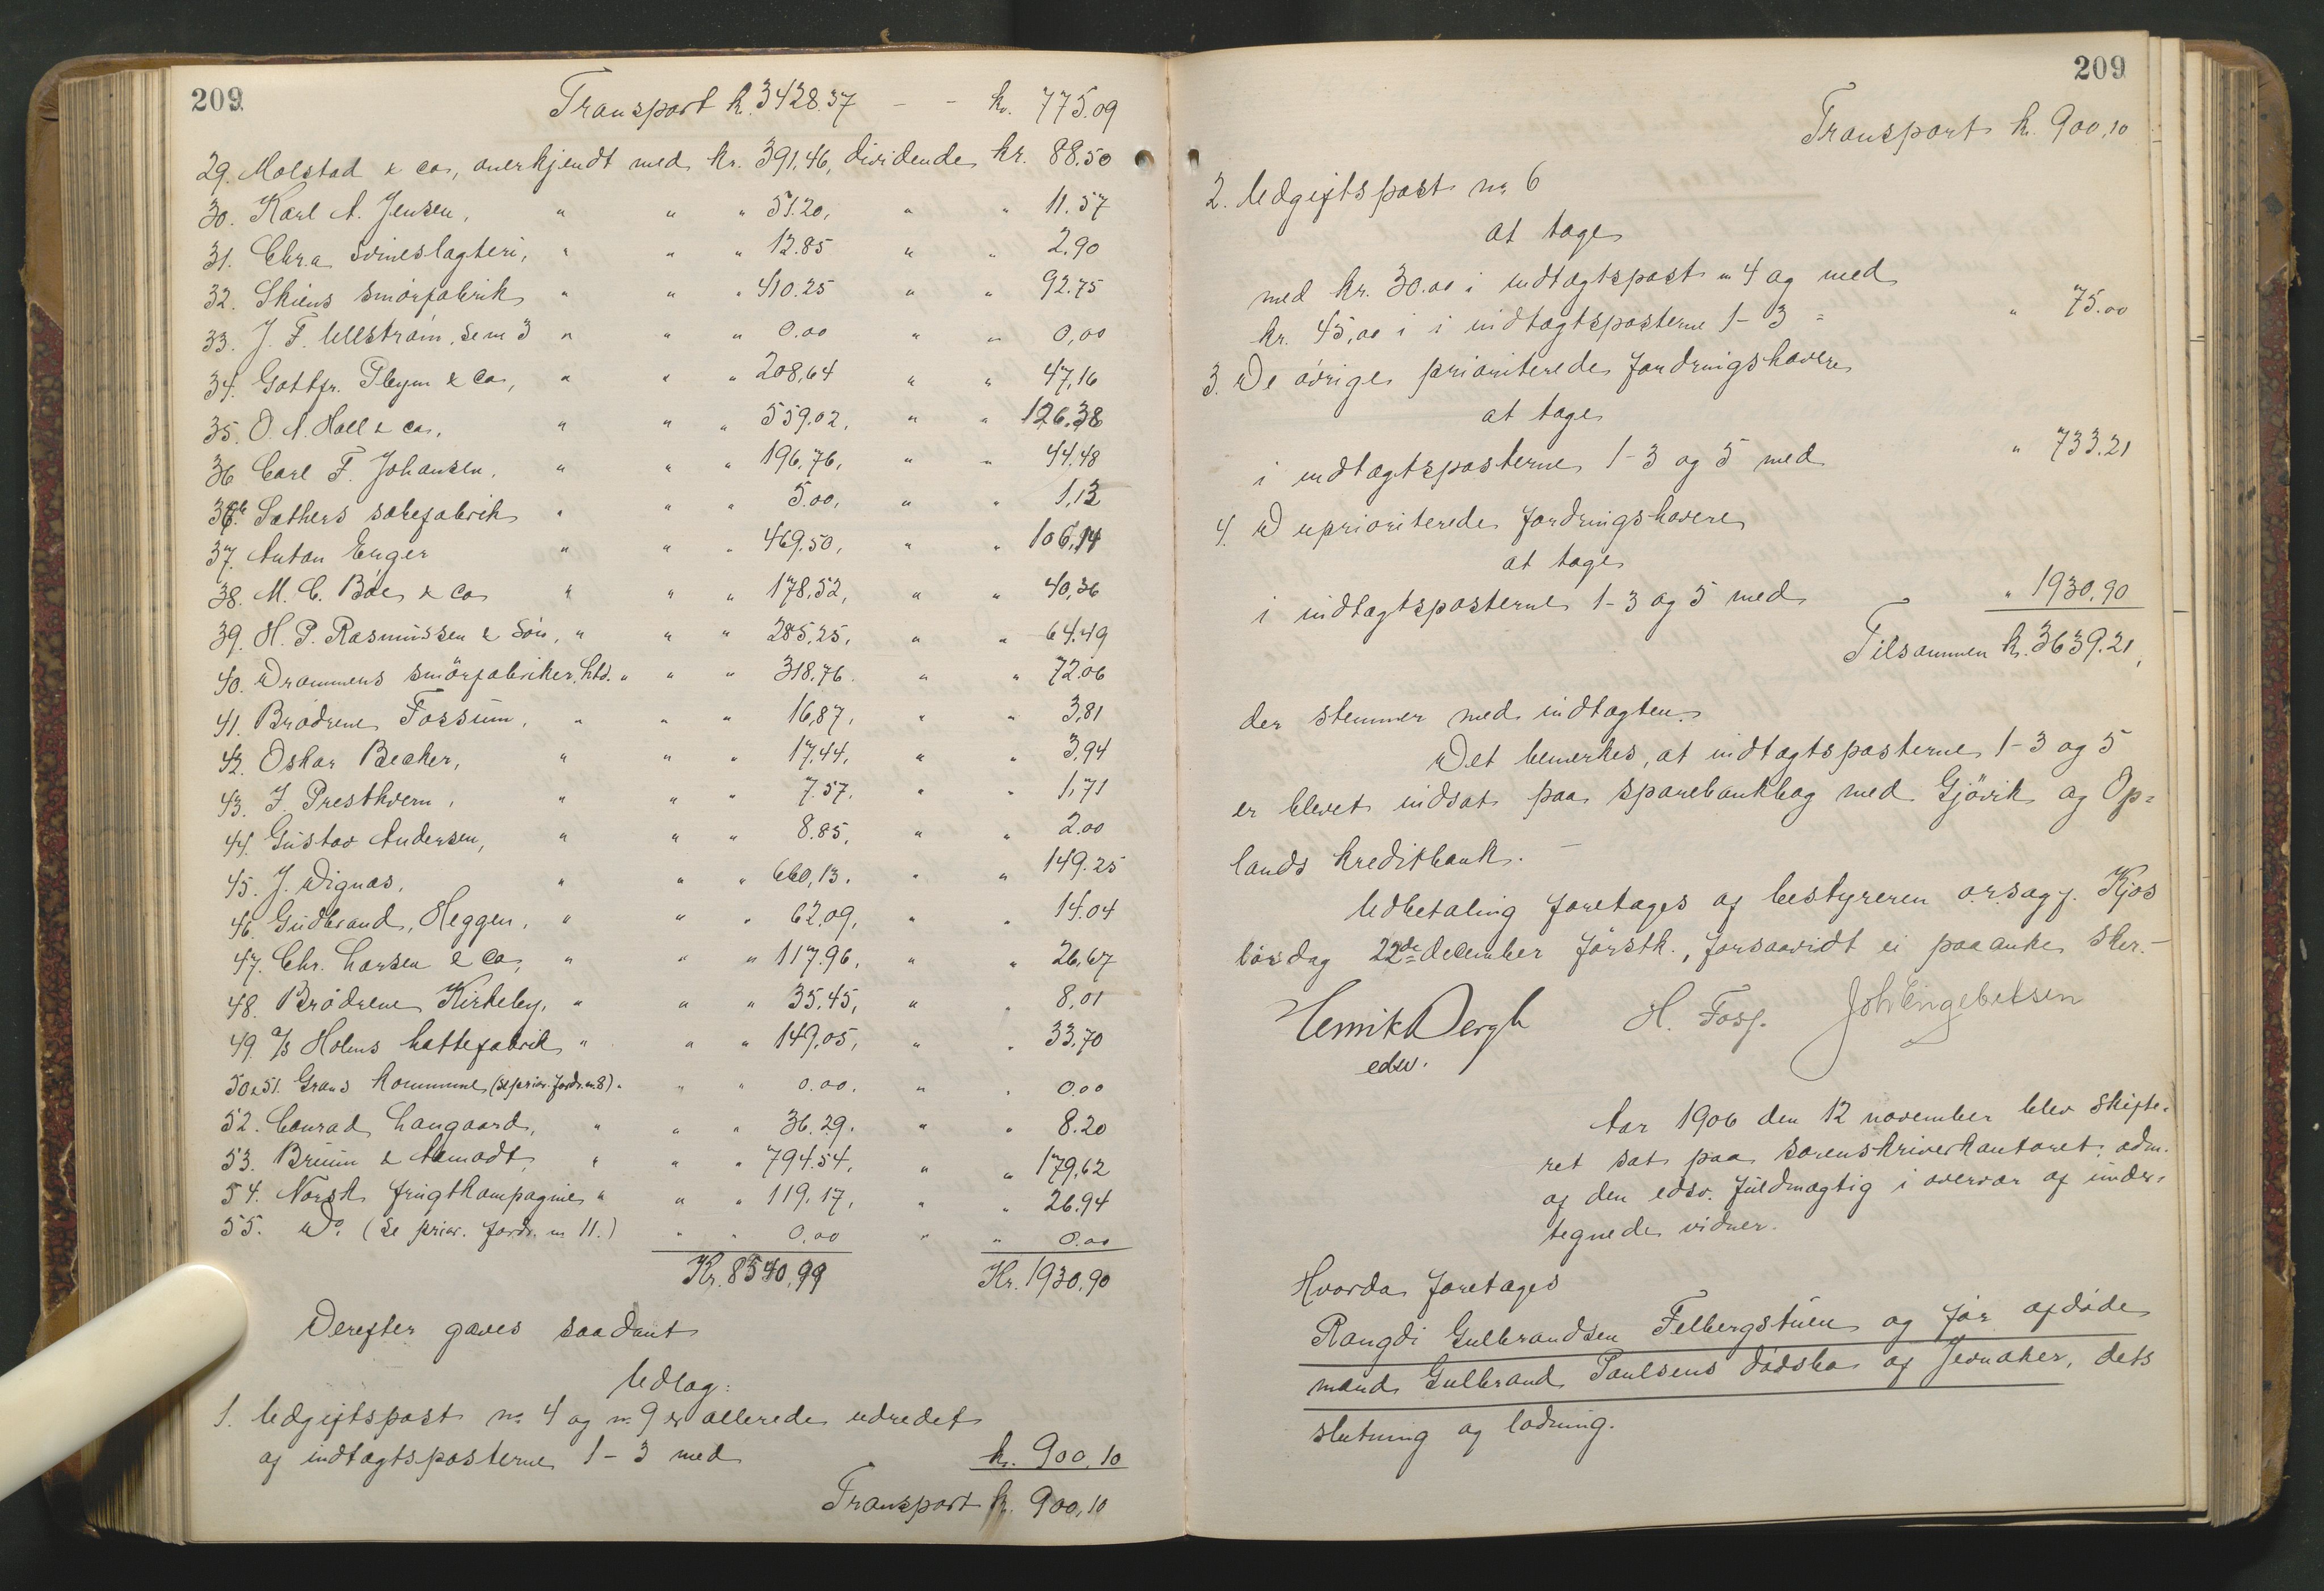 209
Transport kr. 3428.37 - - kr. 775.09
29. Molstad & co., anerkjendt med kr. 391,46, dividende kr. 88.50
30. Karl A. Jensen, " " " 51.20, " " 11.57
31. Chr.a svineslagteri, " " " 12.85 " " 2.90
32. Skiens smörfabrik " " " 410.25 " " 92.75
33. J. F. Ullström, se nr 3 " " " 0.00 " " 0,00
34. Gottfr. Pleym & Co, " " " 208,64 " " 47,16
35. O. A. Hall & co., " " " 559.02, " " 126.38
36 Carl F. Johansen, " " " 196,76, " " 44,48
36b. Sæthers sæbefabrik " " " 5.00, " " 1,13
37. Anton Enger " " " 469.50, " " 106,14
38. M. C. Böe & Co " " " 178,52, " " 40,36
39. H. P. Rasmussen & Sön, " " " 285,25, " " 64.49
40. Drammens smörfabriker, Ltd. " " " 318,76. " " 72.06
41. Brödrene Fossum, " " " 16,87, " " 3,81
42. Oskar Becker, " " " 17,44, " " 3,94
43. J. Presthvern, " " " 7.57, " " 1,71
44. Gustav Andersen, " " " 8.85, " " 2.00
45. J. Dignæs, " " " 660,13. " " 149.25
46. Gudbrand Heggen, " " " 62.09, " " 14.04
47. Chr. Larsen & Co, " " " 117.96, " " 26,67
48. Brödrene Kirkeby, " " " 35.45, " " 8,01
49. a/s Holms hattefabrik " " " 149,05, " " 33,70
50 & 51. Grans kommune (se prior. fordr. nr 8) " " " 0.00. " " 0.00
52. Conrad Langaard, " " " 36.29. " " 8.20
53. Bruun & Aamodt, " " " 794.54, " " 179,62
54. Norsk frugtkompagnie " " " 119,17, " " 26.94
55. Do. (se prior. fordr. nr 11.) " " 0.00 " " 0.00
Kr. 8540,99 Kr. 1930,90
Derefter gaves saadant
Udlæg:
1. Udgiftspost nr 4 og nr 9 er allerede udredet
af indtægtsposterne 1-3 med kr. 900,10
Transport kr. 900,10
209
Transport kr. 900,10
2. Udgiftspost nr 6
at tage
med kr. 30.00 i indtægtspost nr 4 og med
kr. 45,00 i i indtægtsposterne 1-3 = " 75.00
3. De övrige prioriterede fordringshavere
at tage
i indtægtsposterne 1-3 og 5 med " 733.21
4. D uprioriterede fordringshavere
at tage
i indtægtsposterne 1-3 og 5 med " 1930,90
Tilsammen kr. 3639.21,
der stemmer med indtægten.
Det bemerkes, at indtægtsposterne 1-3 og 5
er blevet indsat paa sparebankbog med Gjövik og Op=
lands kreditbank. -
Udbetaling foretages af bestyreren o.r.sagf. Kjos
lördag 22de december förstk., forsaavidt ei paaanke sker. -
Henrik Bergh H. Foss. Joh Engebretsen
edsv.
Aar 1906 den 12 november blev skifte-
ret sat paa sorenskriverkontoret; adm.
af den edsv. fuldmægtig i overvær af under-
tegnede vidner.
Hvorda foretages
Rangdi Gulbrandsen Felbergstuen og før afdöde
mand Gulbrand Paulsens dödsbo af Jevnaker, dets
slutning og lodning.